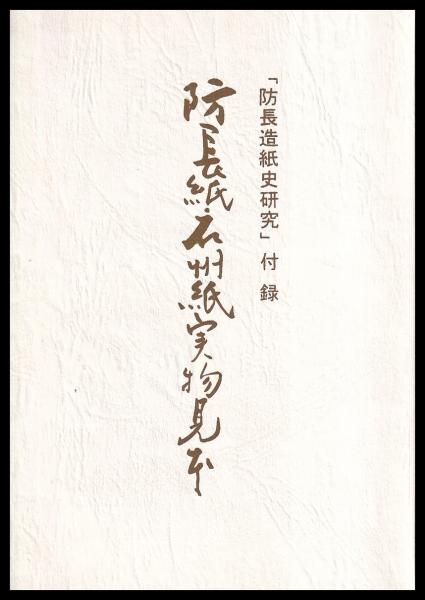 「防長造紙史研究」付録
防長紙・石州紙実物見本